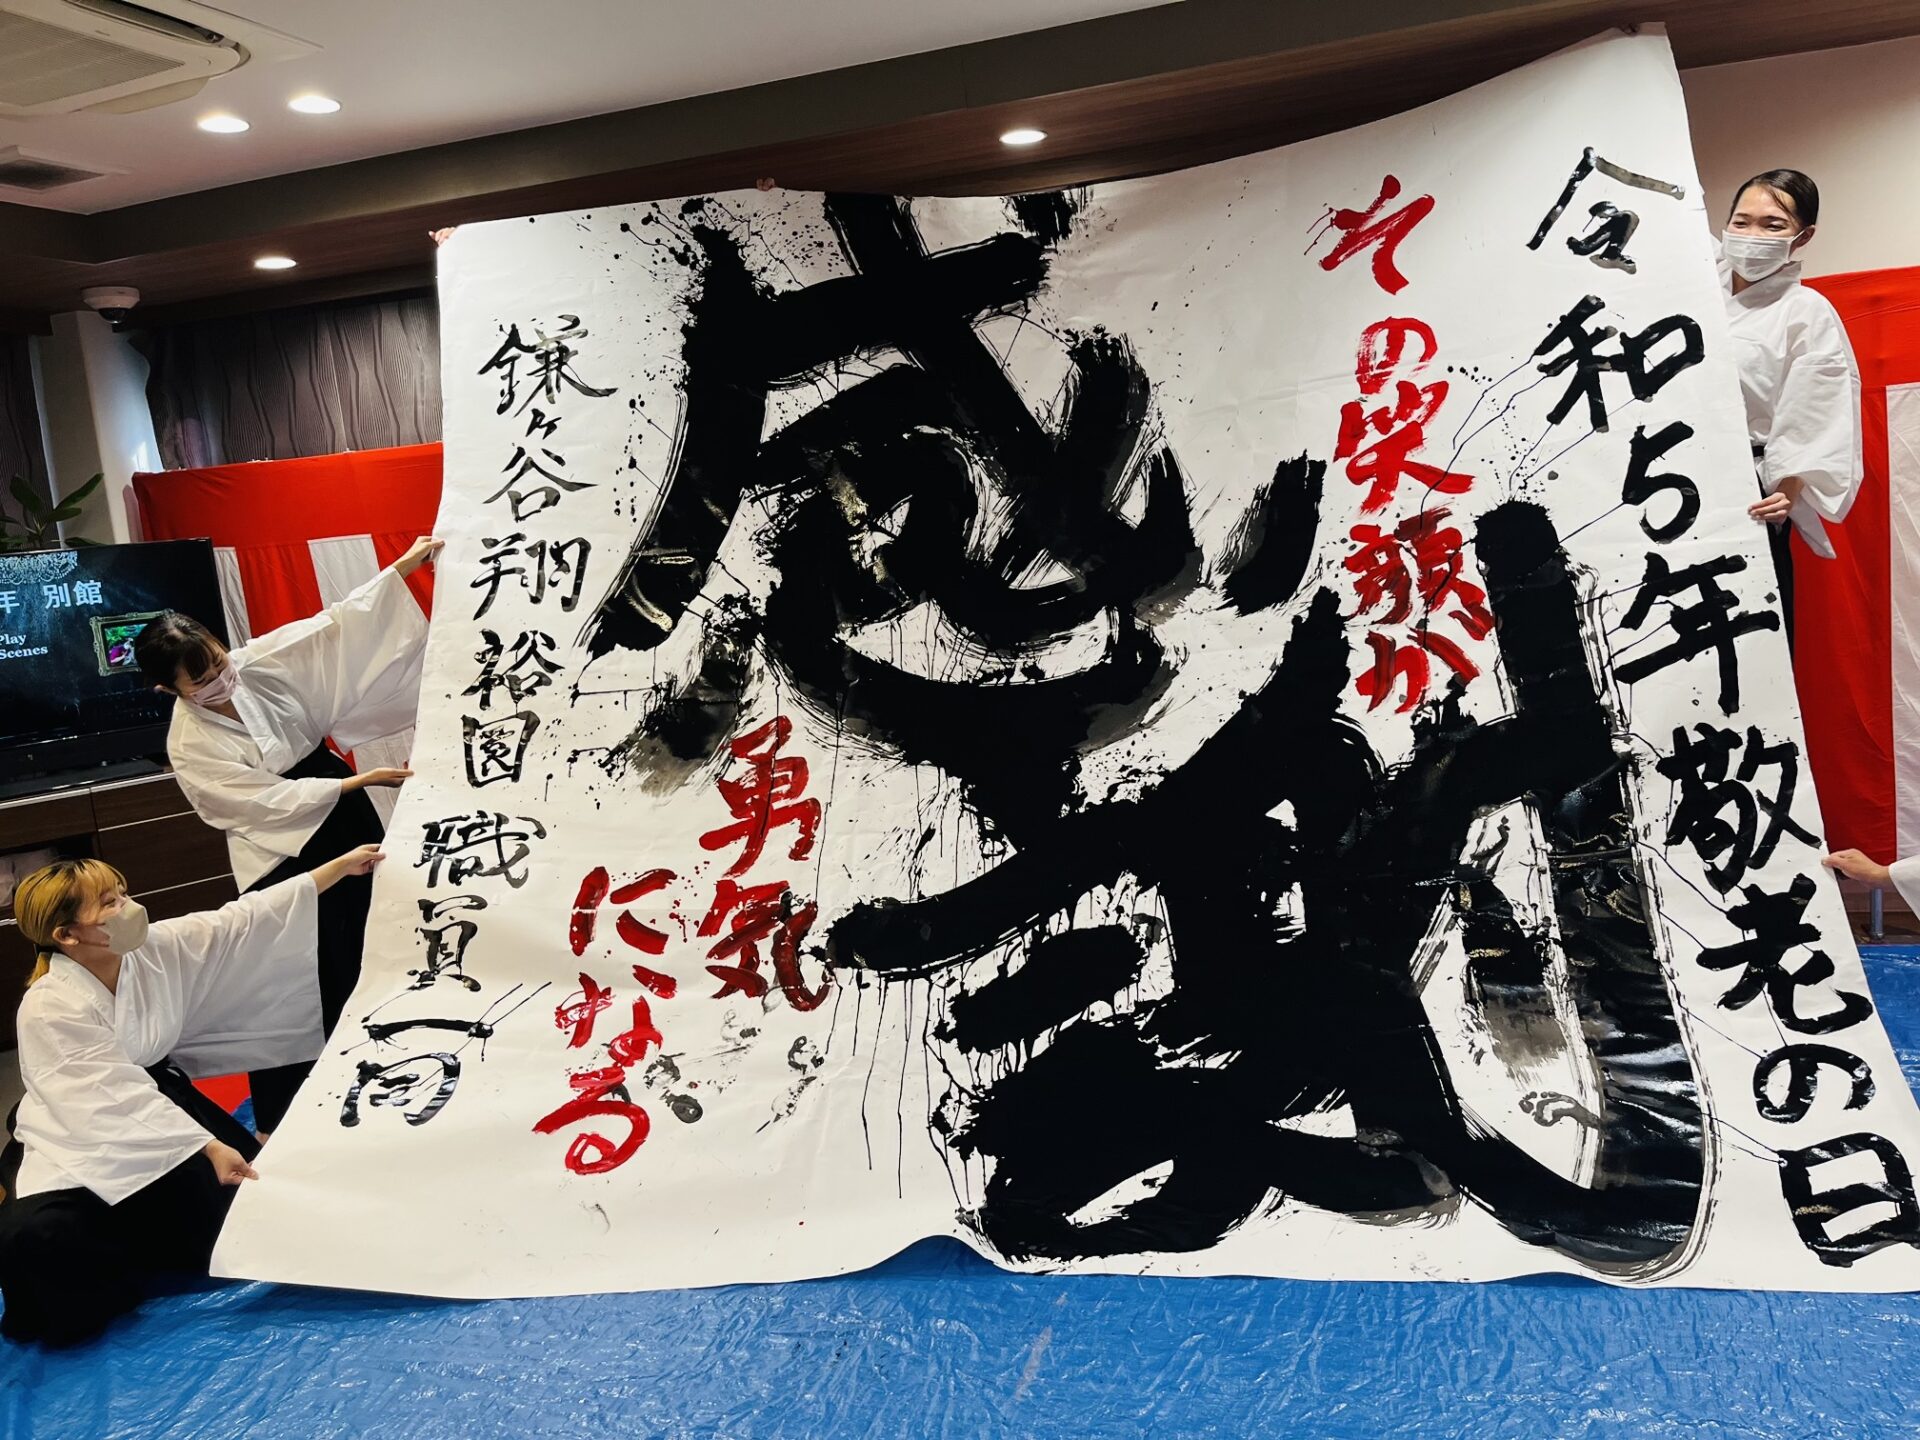 令和5年敬老の日
その笑顔が
感謝
勇気
になる
鎌ヶ谷翔裕園職員一同
年 別館
Play
Scenes